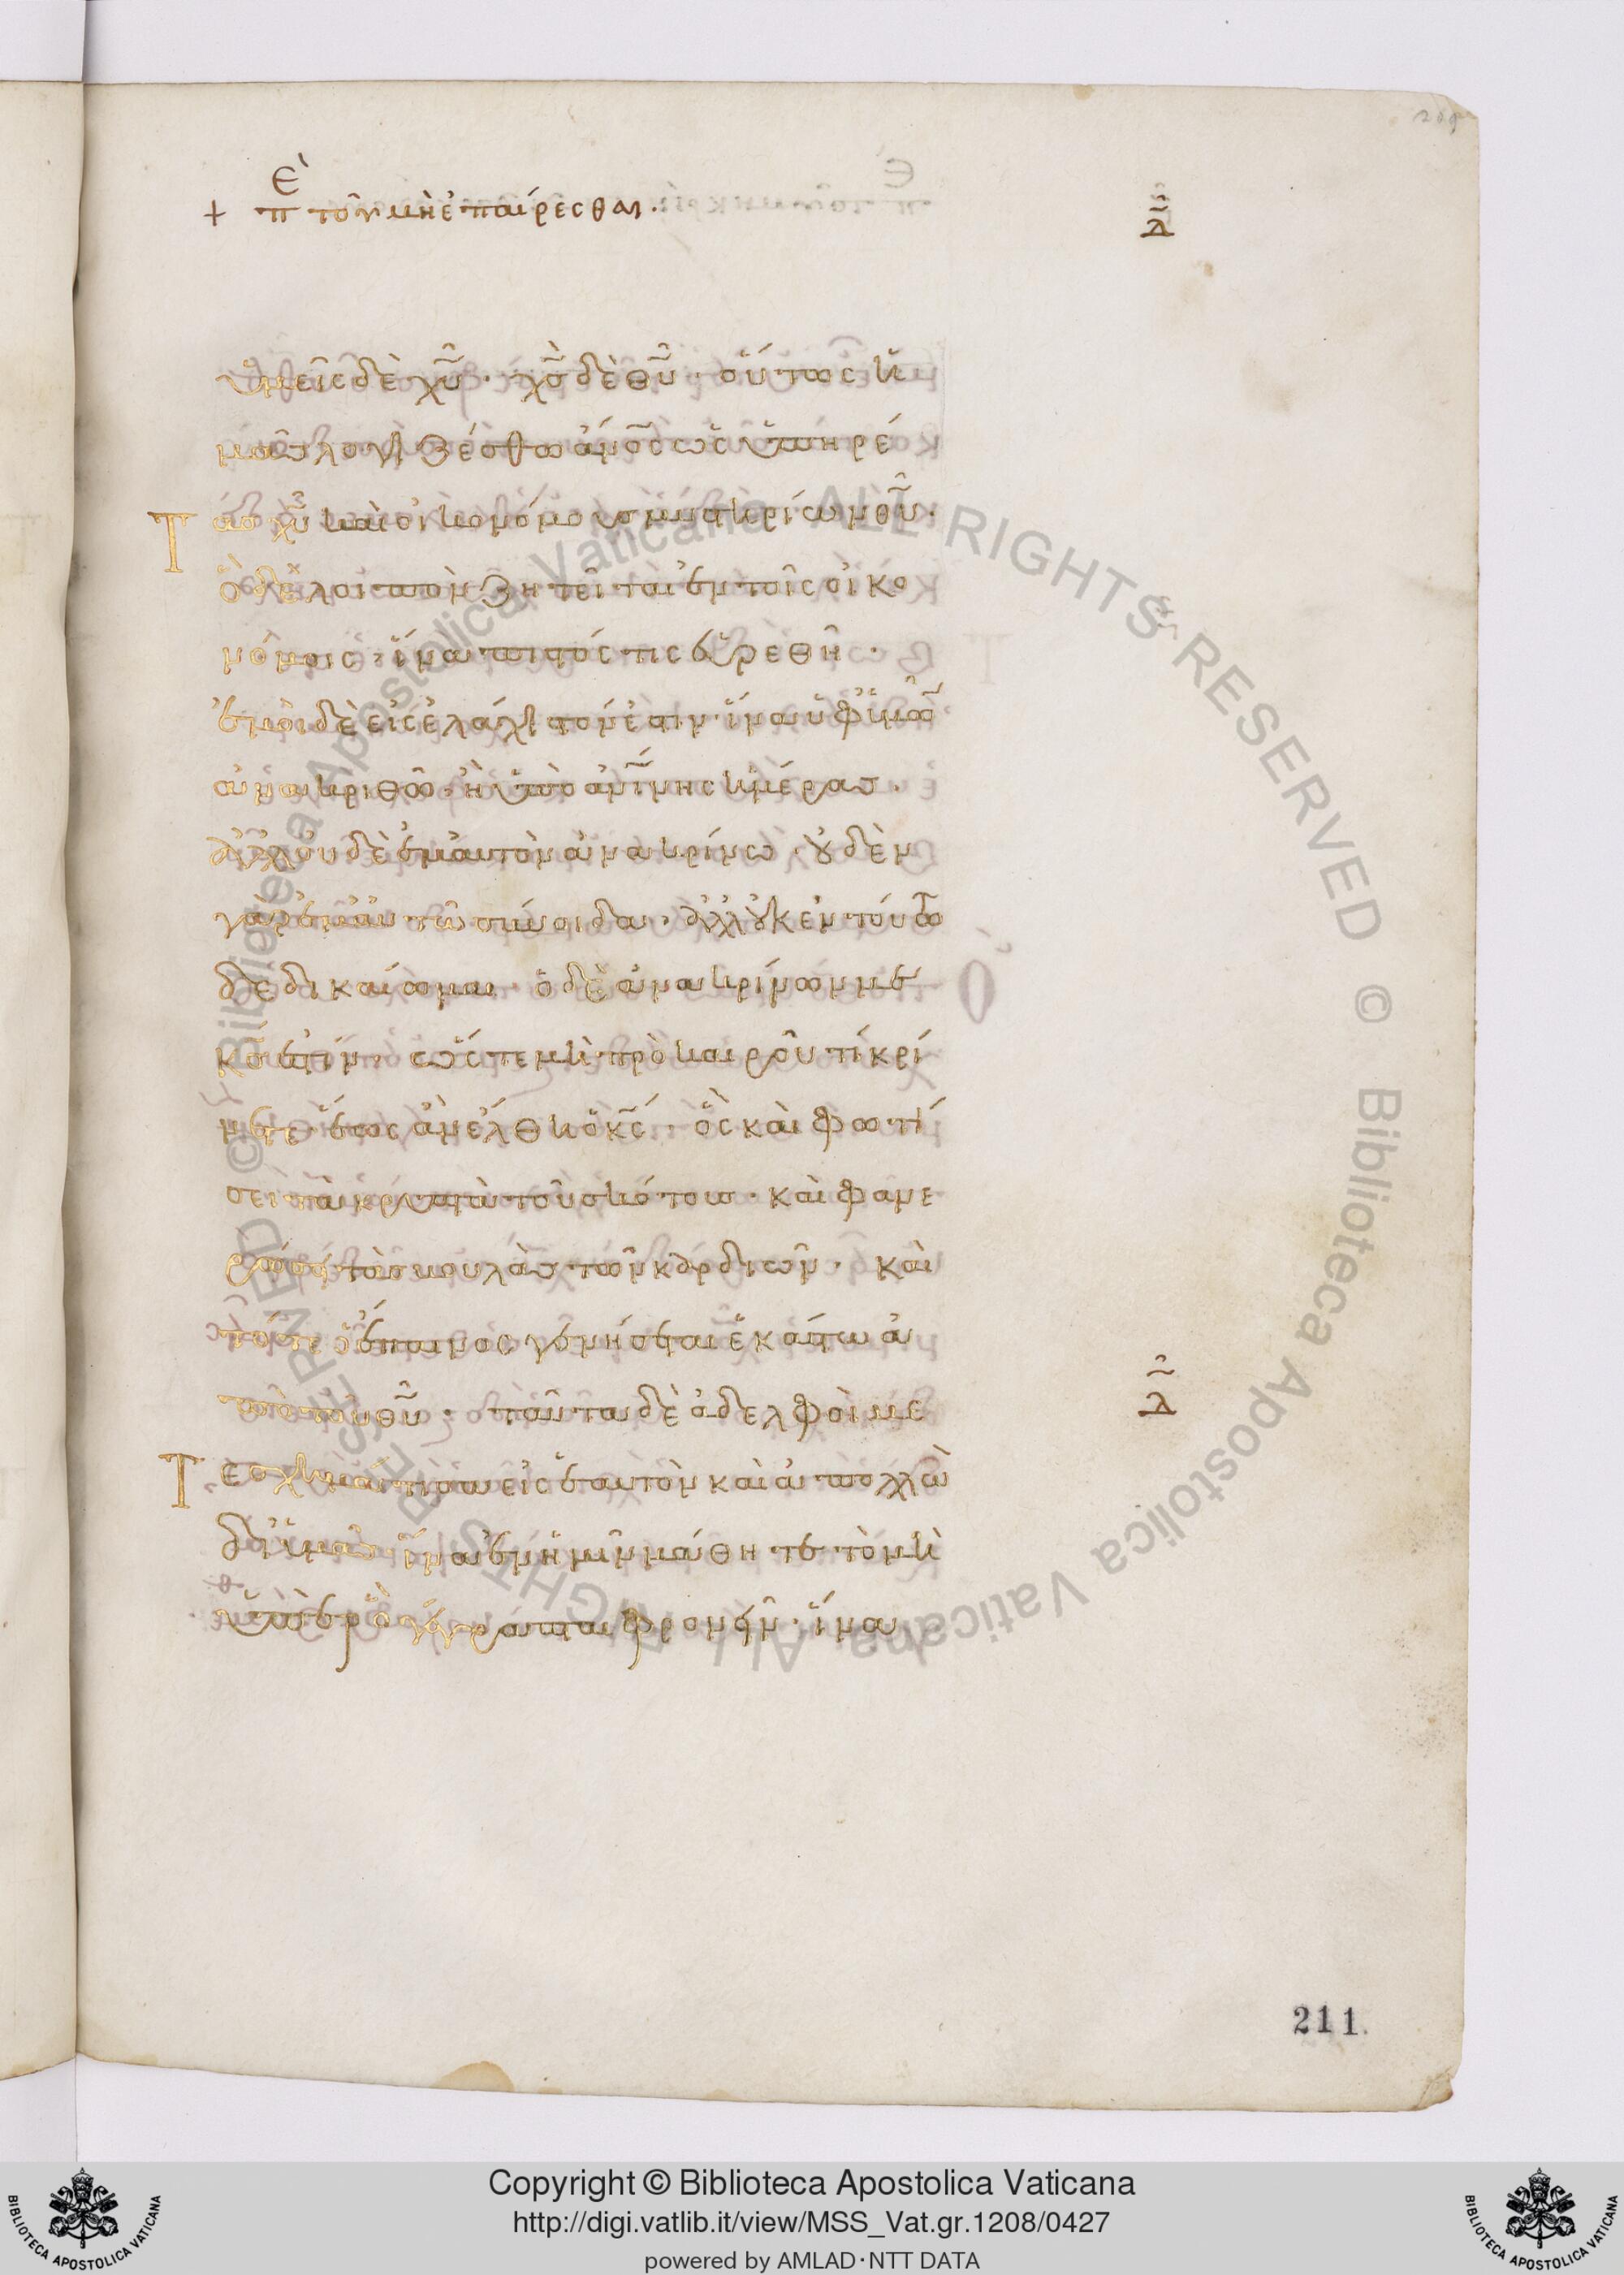 209
Ἐπ τοῦ μὴ ἐπαίρεσθαι.
ὑμεῖς δὲ χυ̅· χς̅ δὲ θυ̅· οὕτως ἡ
μᾶς λογιζέσθω ἄνος̅ ὡς ὑπηρέ
τας χυ̅ καὶ οἰκονόμους μυστηρίων θυ̅·
ὃ δὲ λοιπὸν ζητεῖται ἐν τοῖς οἰκο
νόμοις· ἵνα πιστός τις εὑρεθῆ·
ἐμοὶ δὲ εἰς ἐλάχιστόν ἐστιν· ἵνα ὑφ' ὑμῶν
ἀνακριθῶ· ἢ ὑπὸ ἀνι̅νης ἡμέρας·
ἀλλ' οὐδὲ ἐμαυτὸν ἀνακρίνω· οὐδὲν
γὰρ ἐμαυτῶ σύνοιδα· ἀλλ' οὐκ ἐν τούτω
δεδικαίωμαι· ὁ δὲ ἀνακρίνων με
κς̅ ἐστίν· ὥστε μὴ πρὸ καιροῦ τί κρί
νετε· ἕως ἂν ἔλθη ὁ κς̅· ὃς καὶ φωτί
σει τὰ κρυπτὰ τοῦ σκότους· καὶ φανε
ρώσει τὰς βουλὰς τῶν καρδιῶν· καὶ
τότε ὁ ἔπαινος γενήσεται ἑκάστω ἀ
πὸ τοῦ θυ̅· ταῦτα δὲ ἀδελφοὶ με
τεσχημάτισα εἰς ἐμαυτὸν καὶ ἀπολλὼ
δι' ὑμᾶς ἵνα ἐν ἡμῖν μάθητε τὸ μὴ
ὑπὲρ ὃ γέγραπται φρονεῖν· ἵνα
211
Copyright © Biblioteca Apostolica Vaticana
http://digi.vatlib.it/view/MSS_Vat.gr.1208/0427
powered by AMLAD·NTT DATA
BIBLIOTECA APOSTOLICA VATICANA
BIBLIOTECA APOSTOLICA VATICANA
© Biblioteca Apostolica Vaticana ALL RIGHTS RESERVED
© Biblioteca Apostolica Vaticana ALL RIGHTS RESERVED